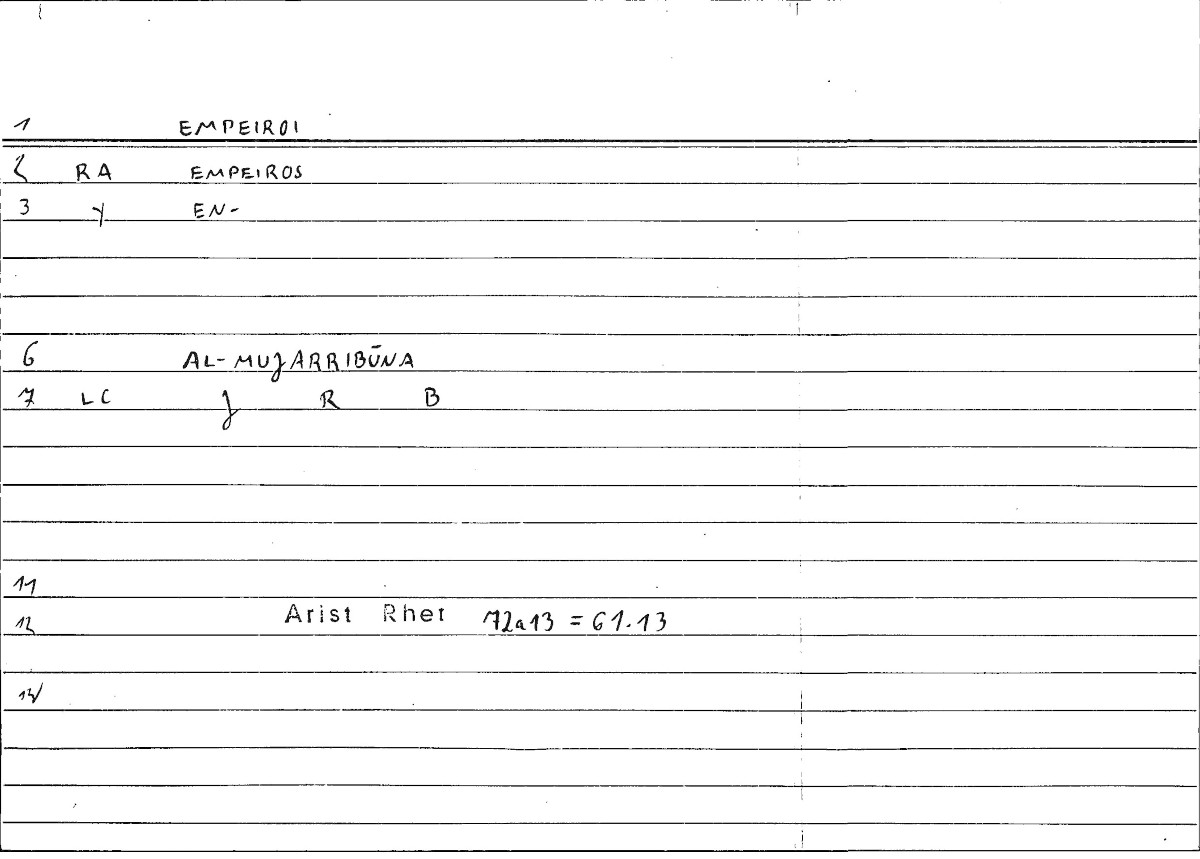 1 EMPEIROI
2 RA EMPEIROS
3 y EN-
6 AL-MUJARRIBŪNA
7 LC J R B
11
12 Arist Rhet 72a13 = 61.13
14